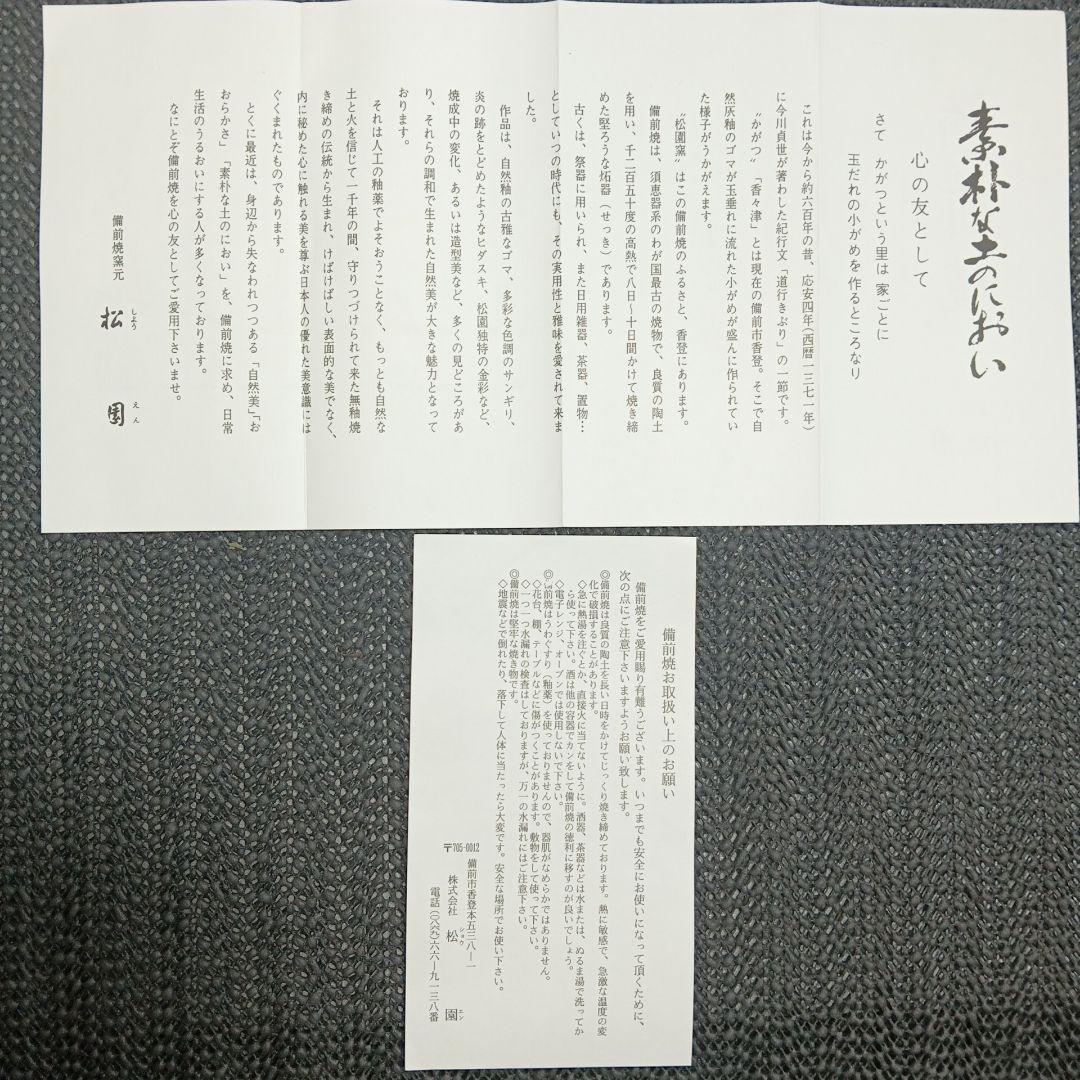 素朴な土のにおい
心の友として
さて かがつという里は 家ごとに
玉だれの小がめを 作るところなり
これは今から約六百年の昔、応安四年(西暦一三七一年)
に今川貞世が著わした紀行文「道行きぶり」の一節です。
“かがつ”「香々津」とは現在の備前市香登。そこで自
然灰釉のゴマが玉垂れに流れた小がめが盛んに作られてい
た様子がうかがえます。
“松園窯”はこの備前焼のふるさと、香登にあります。
備前焼は、須恵器系のわが国最古の焼物で、良質の陶土
を用い、千二百五十度の高熱で八日~十日間かけて焼き締
めた堅ろうな炻器(せっき)であります。
古くは、祭器に用いられ、また日用雑器、茶器、置物…
としていつの時代にも、その実用性と雅味を愛されて来ま
した。
作品は、自然釉の古雅なゴマ、多彩な色調のサンギリ、
炎の跡をとどめたようなヒダスキ、松園独特の金彩など、
焼成中の変化、あるいは造型美など、多くの見どころがあ
り、それらの調和で生まれた自然美が大きな魅力となって
おります。
それは人工の釉薬でよそおうことなく、もっとも自然な
土と火を信じて一千年の間、守りつづけられて来た無釉焼
き締めの伝統から生まれ、けばけばしい表面的な美でなく、
内に秘めた心に触れる美を尊ぶ日本人の優れた美意識には
ぐくまれたものであります。
とくに最近は、身辺から失なわれつつある「自然美」「お
おらかさ」「素朴な土のにおい」を、備前焼に求め、日常
生活のうるおいにする人が多くなっております。
なにとぞ備前焼を心の友としてご愛用下さいませ。
備前焼窯元
松園
しよう えん
備前焼お取扱い上のお願い
備前焼をご愛用賜り有難うございます。いつまでも安全にお使いになって頂くために、
次の点にご注意下さいますようお願い致します。
◎備前焼は良質の陶土を長い日時をかけてじっくり焼き締めております。熱に敏感で、急激な温度の変
化で破損することがあります。
◇急に熱湯を注ぐとか、直接火に当てないように。酒器、茶器などは水または、ぬるま湯で洗ってか
ら使って下さい。酒は他の容器でカンをして備前焼の徳利に移すのが良いでしょう。
◇電子レンジ、オーブンでは使用しないで下さい。
◎備前焼はうわぐすり(釉薬)を使っておりませんので、器肌がなめらかではありません。
◇花台、棚、テーブルなどに傷がつくことがあります。敷物をして使って下さい。
◇一つ一つ水漏れの検査はしておりますが、万一の水漏れにはご注意下さい。
◎備前焼は堅牢な焼き物です。
◇地震などで倒れたり、落下して人体に当たったら大変です。安全な場所でお使い下さい。
〒705-0012
備前市香登本五三八―一
株式会社 松園
ショウ エン
電話(〇八六九)六六―九一三八番